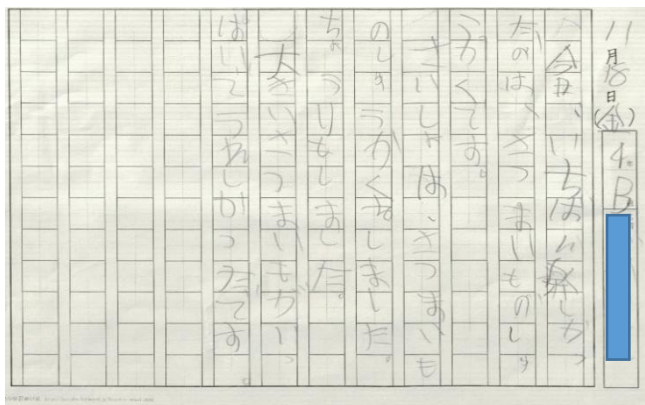 11月18日(金) 4.B
今日、いちばん楽しかっ
たのは、さつまいものしゅ
うかくです。
さいしょは、さつまいも
のしゅうかくをしました。
ちょうりもしました。
大きいさつまいもがいっ
ぱいでうれしかったです。